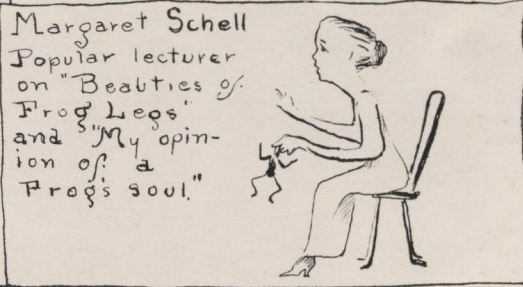 Margaret Schell
Popular lecturer
on "Beauties of
Frog Legs"
and "My opin-
ion of a
Frog's soul."